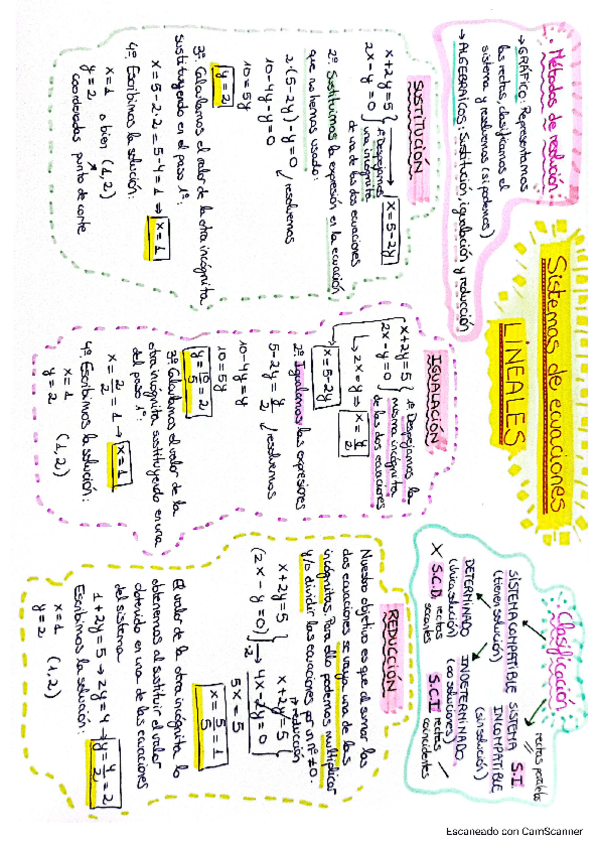 Sistemas de ecuaciones
LINEALES
Métodos de resolución:
→ GRÁFICO: Representamos
las rectas, clasificamos el
sistema y resolvemos (si podemos)
→ ALGEBRAICOS: Sustitución, igualación y reducción
Clasificación
SISTEMA COMPATIBLE
(tienen solución)
DETERMINADO
(única solución)
S.C.D. rectas
secantes
INDETERMINADO
(∞ soluciones)
S.C.I rectas
coincidentes
SISTEMA S.I.
INCOMPATIBLE
(sin solución)
rectas paralelas
SUSTITUCIÓN
x+2y=5
2x-y=0
→ x=5-2y
1º Despejamos
una incógnita
de una de las dos ecuaciones
2º Sustituimos la expresión en la ecuación
que no hemos usado:
2·(5-2y)-y=0 / resolvemos
10-4y-y=0
10=5y
y=2
3º Calculamos el valor de la otra incógnita
sustituyendo en el paso 1º:
x=5-2·2=5-4=1 ⇒ x=1
4º Escribimos la solución:
x=1
y=2
o bien (1,2)
coordenadas punto de corte
IGUALACIÓN
x+2y=5
2x-y=0
1º Despejamos la
misma incógnita
de las dos ecuaciones
→ 2x=y ⇒ x=y/2
x=5-2y
2º Igualamos las expresiones
5-2y=y/2 / resolvemos
10-4y=y
10=5y
y=10/5=2
3º Calculamos el valor de la
otra incógnita sustituyendo en una
del paso 1º
x=2/2=1 → x=1
4º Escribimos la solución:
x=1
y=2
(1,2)
REDUCCIÓN
Nuestro objetivo es que al sumar las
dos ecuaciones se vaya una de las
incógnitas. Para ello podemos multiplicar
y/o dividir las ecuaciones por un nº≠0.
x+2y=5
(2x-y=0)·2
→
x+2y=5
4x-2y=0
reducción
5x=5
x=5/5=1
El valor de la otra incógnita lo
obtenemos al sustituir el valor
obtenido en una de las ecuaciones
del sistema
1+2y=5 → 2y=4 → y=4/2=2
Escribimos la solución:
x=1
y=2
(1,2)
Escaneado con CamScanner